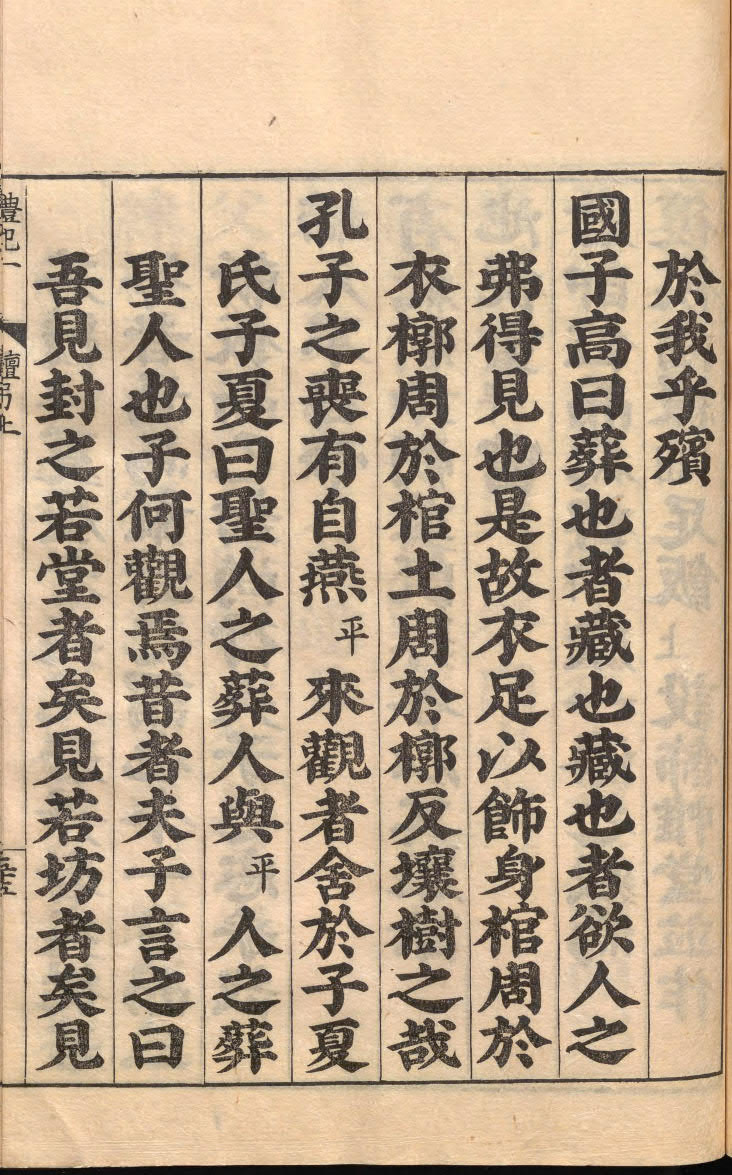 於我乎殯
國子高曰葬也者藏也藏也者欲人之
弗得見也是故衣足以飾身棺周於
衣槨周於棺土周於槨反壤樹之哉
孔子之喪有自燕平來觀者舍於子夏
氏子夏曰聖人之葬人與平人之葬
聖人也子何觀焉昔者夫子言之曰
吾見封之若堂者矣見若坊者矣見
禮記一 檀弓上